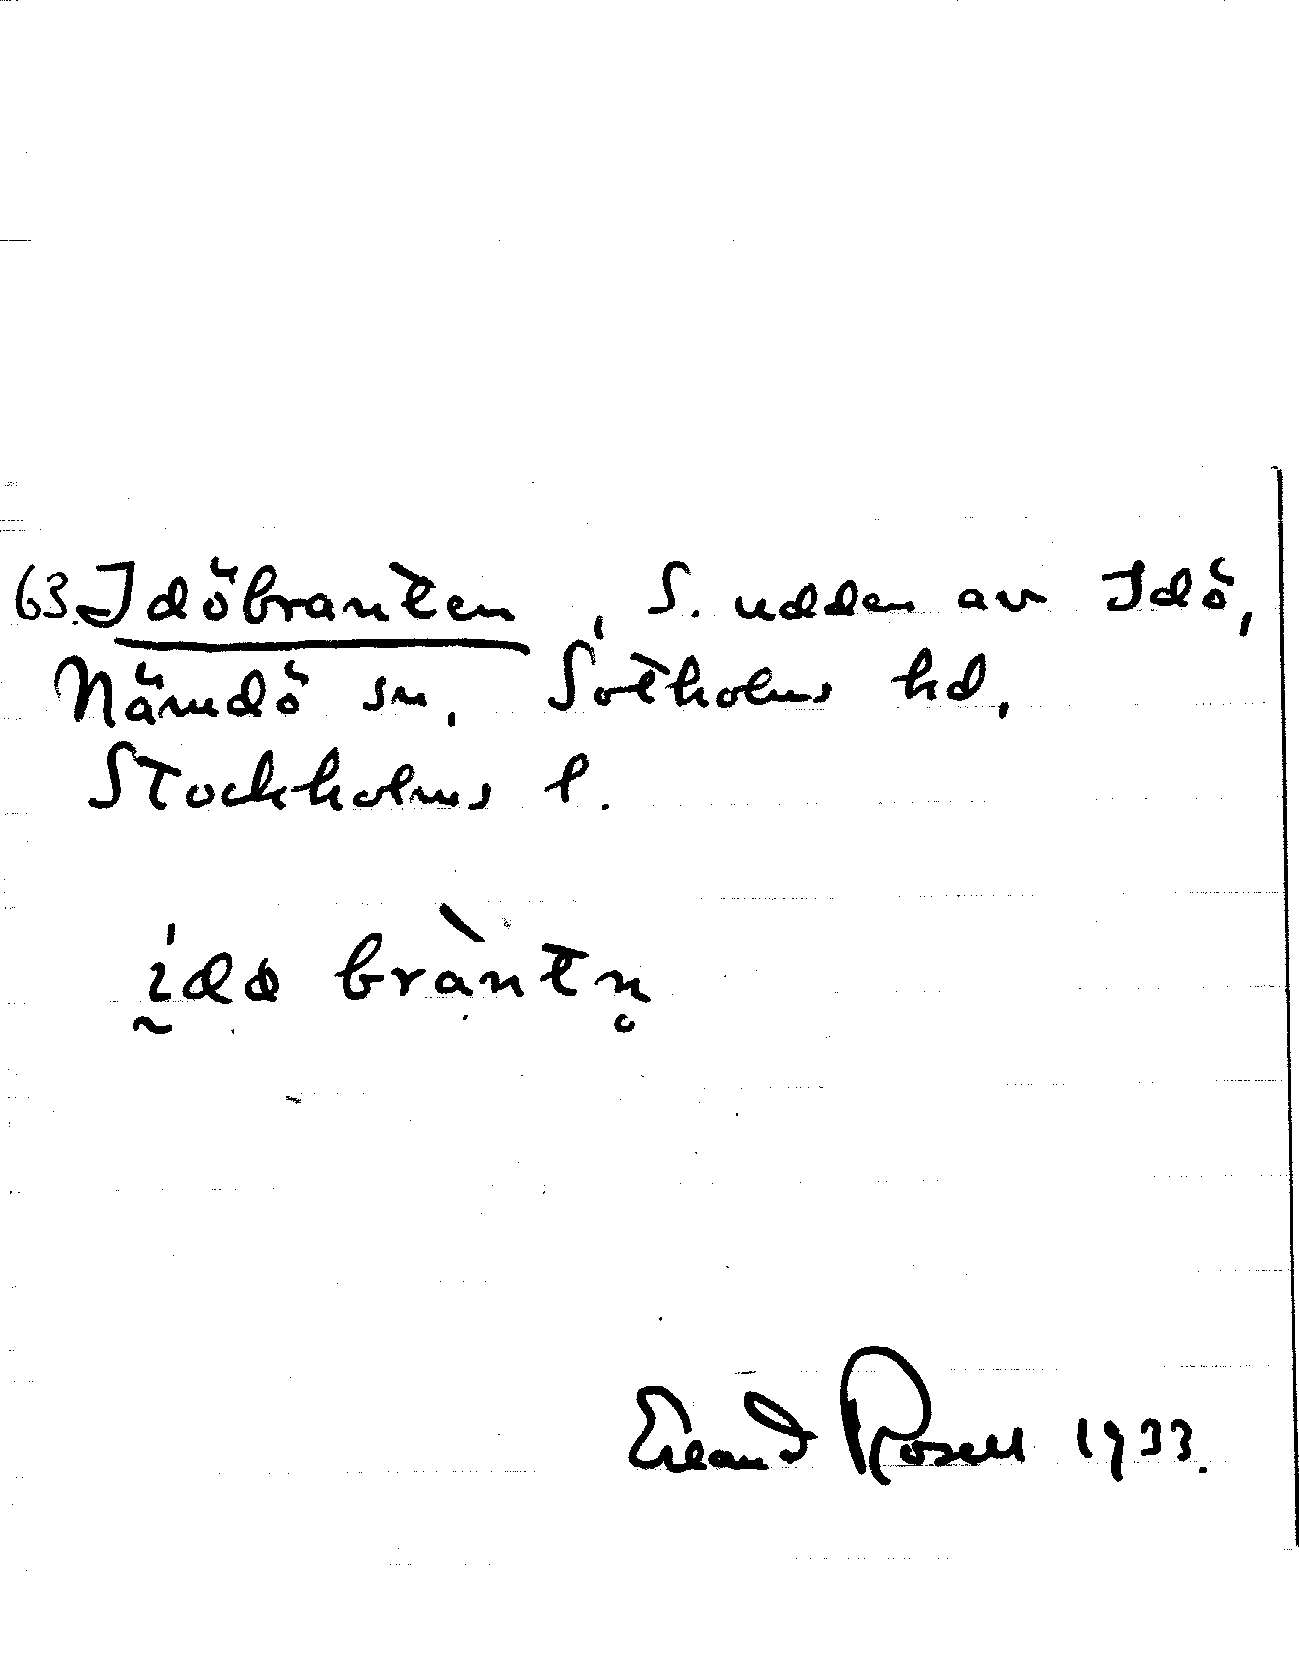 63. Idöbranten, S. udden av Idö,
Nämdö sn, Sotholms hd,
Stockholms l.
ı̰́dø bràntn̥
Erland Rosell 1933.